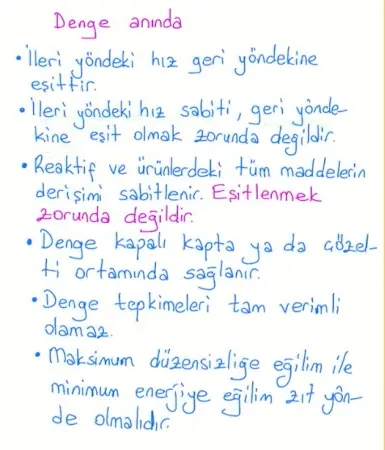 Denge anında
• İleri yöndeki hız geri yöndekine
eşittir.
• İleri yöndeki hız sabiti, geri yönde-
kine eşit olmak zorunda değildir.
• Reaktif ve ürünlerdeki tüm maddelerin
derişimi sabitlenir. Eşitlenmek
zorunda değildir.
• Denge kapalı kapta ya da çözel-
ti ortamında sağlanır.
• Denge tepkimeleri tam verimli
olamaz.
• Maksimum düzensizliğe eğilim ile
minimum enerjiye eğilim zıt yön-
de olmalıdır.